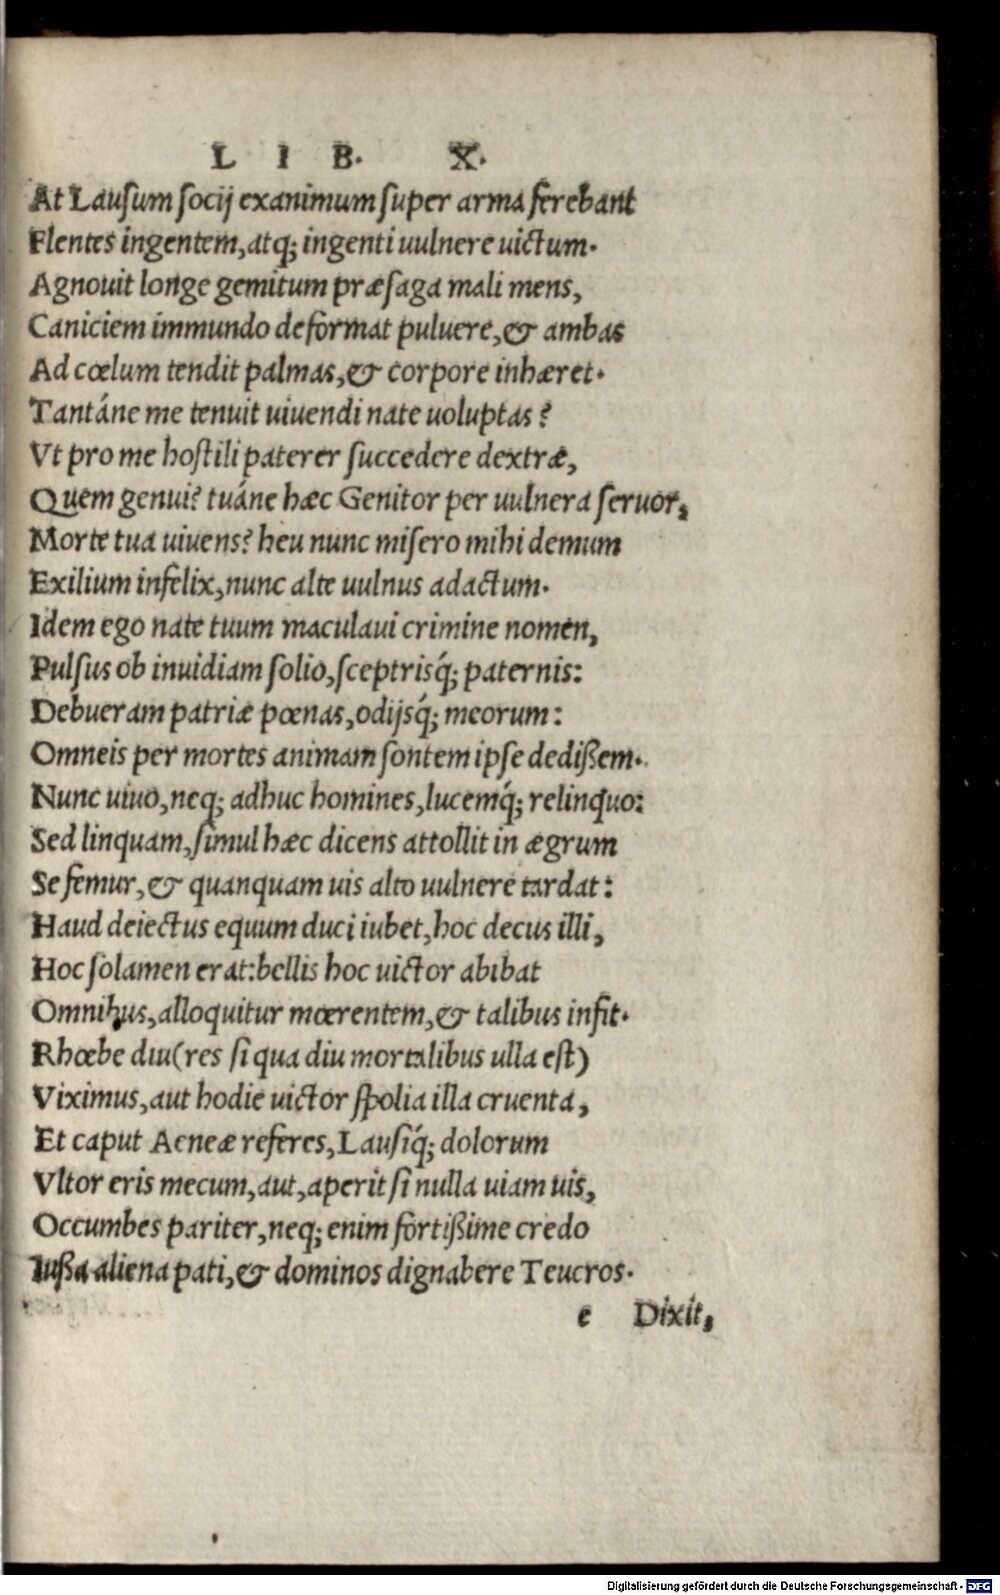 L I B. X.
At Lausum socij exanimum super arma ferebant
Flentes ingentem, atq; ingenti uulnere uictum.
Agnouit longe gemitum præsaga mali mens,
Caniciem immundo deformat puluere, & ambas
Ad cœlum tendit palmas, & corpore inhæret.
Tantáne me tenuit uiuendi nate uoluptas?
Vt pro me hostili paterer succedere dextræ,
Quem genui? tuáne hæc Genitor per uulnera seruor,
Morte tua uiuens? heu nunc misero mihi demum
Exilium infelix, nunc alte uulnus adactum.
Idem ego nate tuum maculaui crimine nomen,
Pulsus ob inuidiam solio, sceptrisq́; paternis:
Debueram patriæ pœnas, odijsq́; meorum:
Omneis per mortes animam sontem ipse dedißem.
Nunc uiuo, neq; adhuc homines, lucemq́; relinquo:
Sed linquam, simul hæc dicens attollit in ægrum
Se femur, & quanquam uis alto uulnere tardat:
Haud deiectus equum duci iubet, hoc decus illi,
Hoc solamen erat: bellis hoc uictor abibat
Omnibus, alloquitur mœrentem, & talibus infit.
Rhœbe diu (res si qua diu mortalibus ulla est)
Viximus, aut hodie uictor spolia illa cruenta,
Et caput Aeneæ referes, Lausiq́; dolorum
Vltor eris mecum, aut, aperit si nulla uiam uis,
Occumbes pariter, neq; enim fortißime credo
Iußa aliena pati, & dominos dignabere Teucros.
e Dixit,
Digitalisierung gefördert durch die Deutsche Forschungsgemeinschaft - DFG